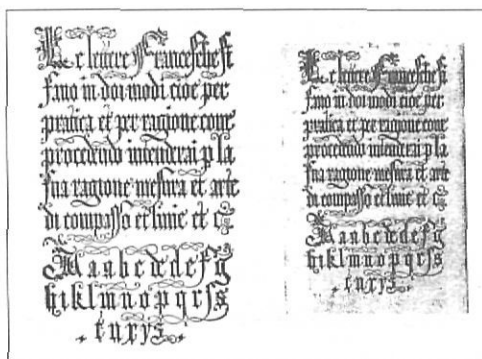 Le letere Franceſche ſi
fano in doi modi cioe per
pratica et per ragione come
procedendo intenderai p la
ſua ragione meſura et arte
di compaſſo et linie et c
A a a b c d e f g
h i k l m n o p q r ſ s
t u x y z
Le letere Franceſche ſi
fano in doi modi cioe per
pratica et per ragione come
procedendo intenderai p la
ſua ragione meſura et arte
di compaſſo et linie et c
A a a b c d e f g
h i k l m n o p q r ſ s
t u x y z